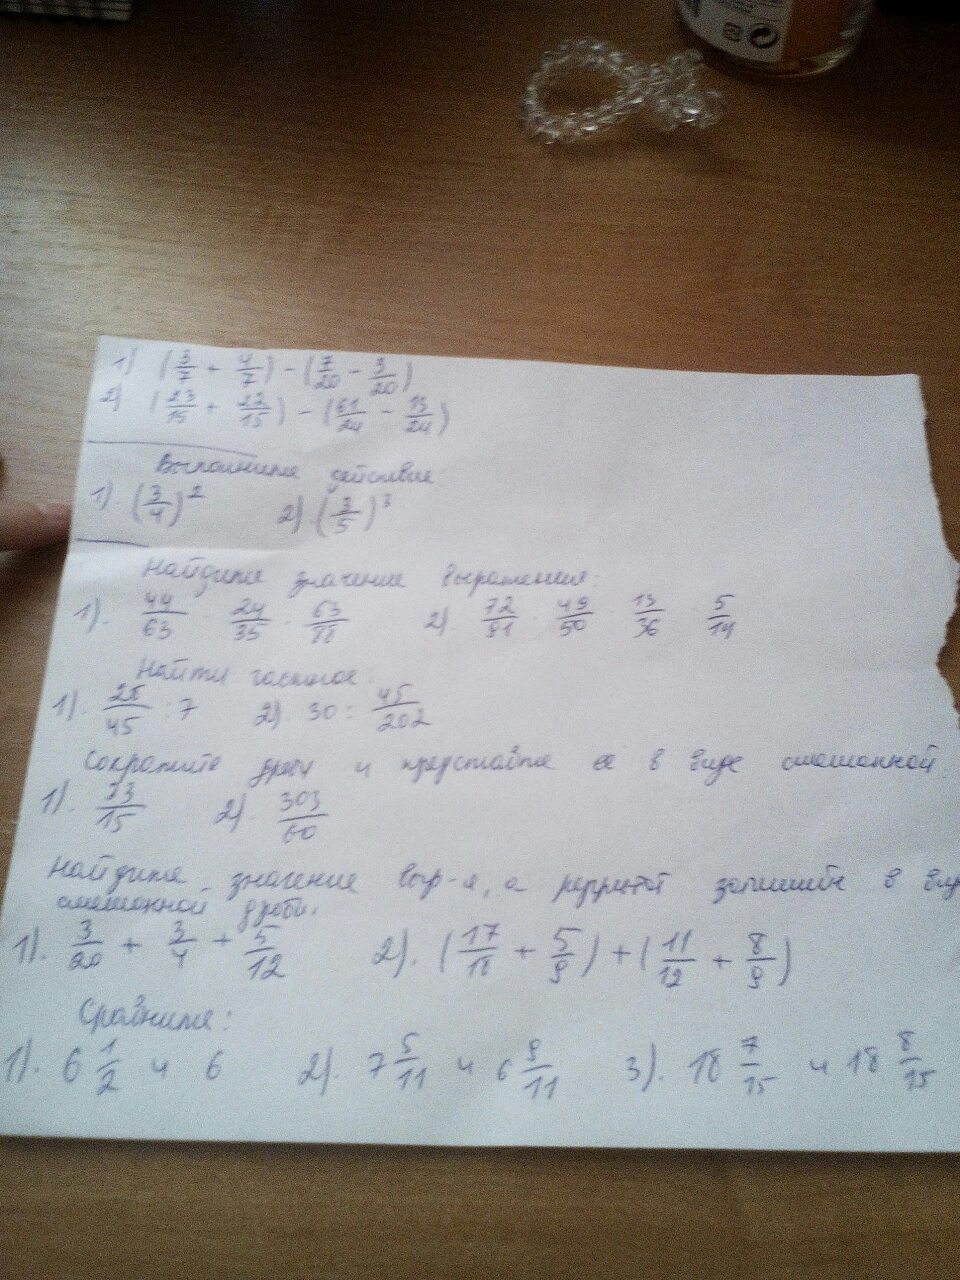 1) (3/7 + 4/7) - (7/20 - 3/20)
2) (23/15 + 22/15) - (61/24 - 13/24)
Выполните действие
1). (3/4)² 2) (3/5)³
Найдите значение выражения:
1). 44/63 · 24/35 · 63/88 2). 72/91 · 49/50 · 13/36 · 5/14
Найти частное:
1). 28/45 : 7 2). 30 : 45/202
Сократите дробь и представьте ее в виде смешанной
1). 33/15 2). 303/60
Найдите значение выр-я, а результат запишите в
смешанной дроби.
1). 3/20 + 3/4 + 5/12 2). (17/18 + 5/9) + (11/12 + 8/9)
Сравните:
1). 6 1/2 и 6 2). 7 5/11 и 6 9/11 3). 18 7/15 и 18 8/15